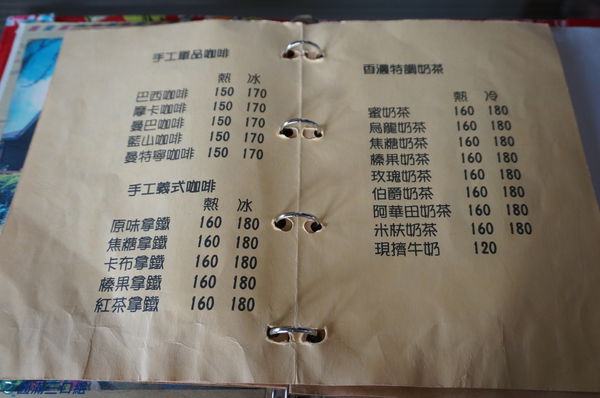 手工單品咖啡
熱 冰
巴西咖啡 150 170
摩卡咖啡 150 170
曼巴咖啡 150 170
藍山咖啡 150 170
曼特寧咖啡 150 170
手工義式咖啡
熱 冰
原味拿鐵 160 180
焦糖拿鐵 160 180
卡布拿鐵 160 180
榛果拿鐵 160 180
紅茶拿鐵 160 180
香濃特調奶茶
熱 冷
蜜奶茶 160 180
烏龍奶茶 160 180
焦糖奶茶 160 180
榛果奶茶 160 180
玫瑰奶茶 160 180
伯爵奶茶 160 180
阿華田奶茶 160 180
米麩奶茶 160 180
現擠牛奶 120